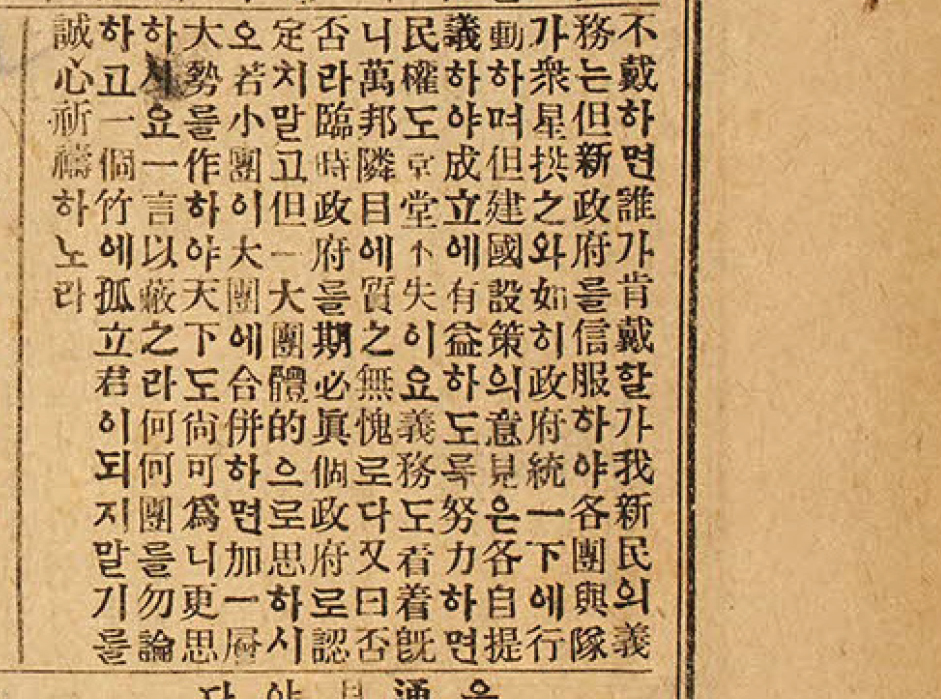 不戴하면誰가肯戴할가我新民의義
務는但新政府를信服하야各團與隊
가衆星拱之와如히政府統一下에行
動하며但建國設策의意見은各自提
議하야成立에有益하도록努力하면
民權도堂堂不失이요義務도着着旣
니萬邦隣目에質之無愧로다又曰否
否라臨時政府를期必眞個政府로認
定치말고但一大團體的으로思하시
오若小團이大團에合併하면加一層
大勢를作하야天下도尙可爲니更思
하시요一言以蔽之라何何團를勿論
하고一個竹에孤立君이되지말기를
誠心祈禱하노라